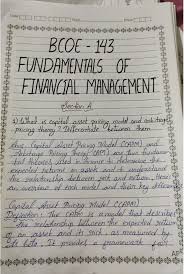 BCOE - 143
FUNDAMENTALS OF
FINANCIAL MANAGEMENT
Section A
What is capital asset pricing model and arbitrage
pricing theory? Differentiate between them
Ans. Capital Asset Pricing Model (CAPM) and
Arbitrage Pricing Theory (APT) are two
used in finance to determine the
expected return on assets and to understand
the relationship between risk and return. Here's
an overview of each model and their key differences
Capital Asset Pricing Model (CAPM)
Definition: The CAPM is a model that describes
the relationship between the expected return
of an asset and its risk as measured by
its beta. It provides a framework for